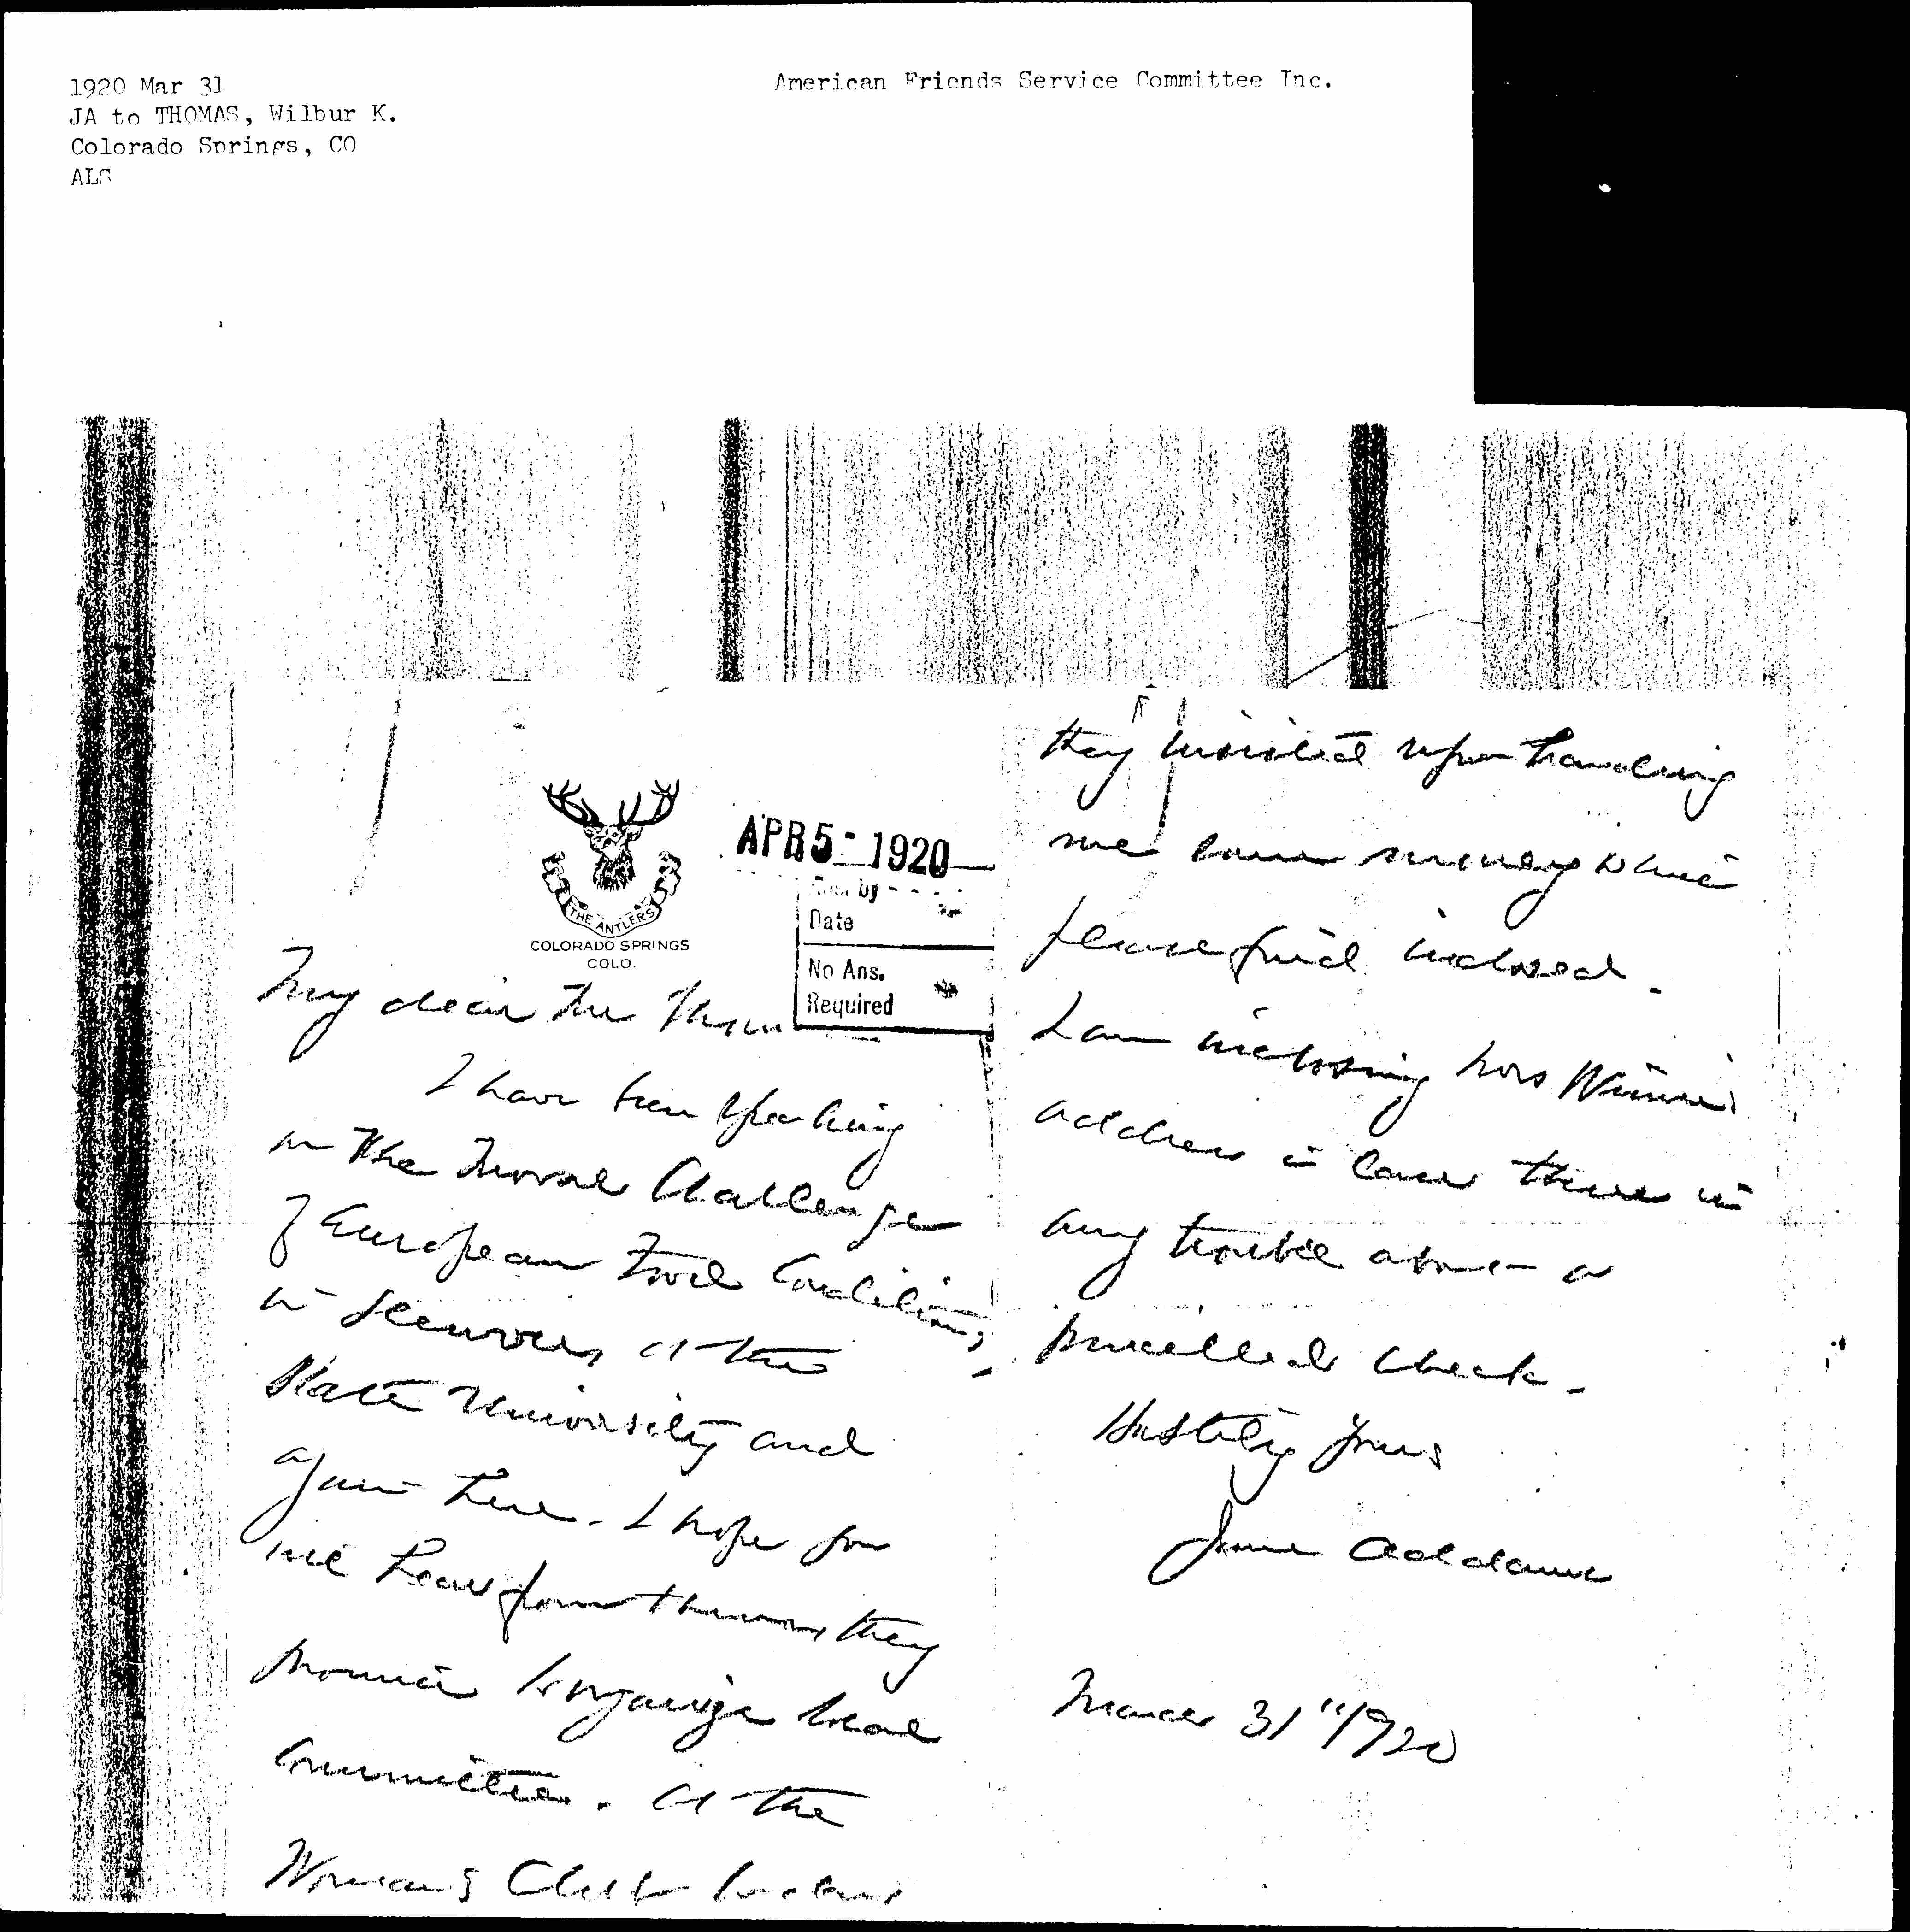 1920 Mar 31
JA to THOMAS, Wilbur K.
Colorado Springs, CO
ALS
American Friends Service Committee Inc.
THE ANTLERS
COLORADO SPRINGS
COLO.
APR 5 - 1920
by
Date
No Ans.
Required
My dear Mr
I have been speaking
on The Moral Challenge
of European Food Conditions
in Denver, at the
State University and
again here. I hope you
will hear from them, they
promise to organize local
Committees. At the
Woman's Club today
they insisted upon handing
me some money which
please find inclosed.
I am inclosing Mrs
address in case there is
any trouble about a
cancelled check.
Hastily yours
Jane Addams
March 31" 1920